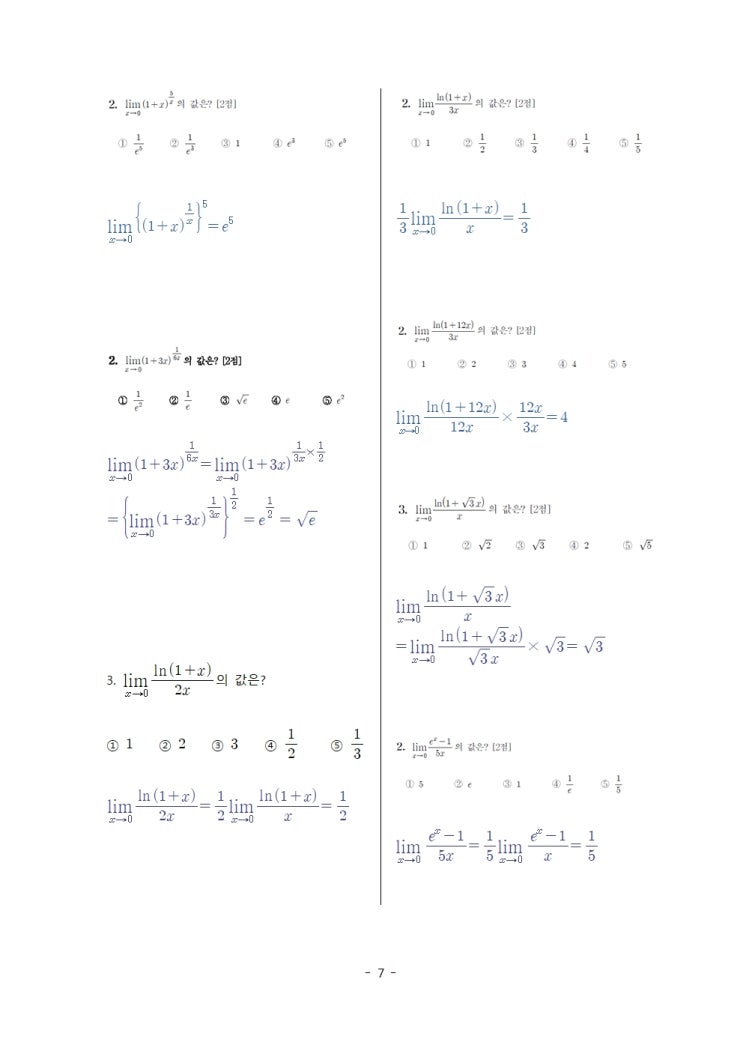 2. lim_{x→0}(1+x)^{5/x}의 값은? [2점]
① 1/e^5 ② 1/e^3 ③ 1 ④ e^3 ⑤ e^5
lim_{x→0}{(1+x)^{1/x}}^5 = e^5
2. lim_{x→0}(1+3x)^{1/6x}의 값은? [2점]
① 1/e^2 ② 1/e ③ √e ④ e ⑤ e^2
lim_{x→0}(1+3x)^{1/6x} = lim_{x→0}(1+3x)^{1/3x × 1/2}
= {lim_{x→0}(1+3x)^{1/3x}}^{1/2} = e^{1/2} = √e
3. lim_{x→0} ln(1+x)/2x 의 값은?
① 1 ② 2 ③ 3 ④ 1/2 ⑤ 1/3
lim_{x→0} ln(1+x)/2x = 1/2 lim_{x→0} ln(1+x)/x = 1/2
2. lim_{x→0} ln(1+x)/3x 의 값은? [2점]
① 1 ② 1/2 ③ 1/3 ④ 1/4 ⑤ 1/5
1/3 lim_{x→0} ln(1+x)/x = 1/3
2. lim_{x→0} ln(1+12x)/3x 의 값은? [2점]
① 1 ② 2 ③ 3 ④ 4 ⑤ 5
lim_{x→0} ln(1+12x)/12x × 12x/3x = 4
3. lim_{x→0} ln(1+√3x)/x 의 값은? [2점]
① 1 ② √2 ③ √3 ④ 2 ⑤ √5
lim_{x→0} ln(1+√3x)/x
= lim_{x→0} ln(1+√3x)/√3x × √3 = √3
2. lim_{x→0} e^x−1/5x 의 값은? [2점]
① 5 ② e ③ 1 ④ 1/e ⑤ 1/5
lim_{x→0} e^x−1/5x = 1/5 lim_{x→0} e^x−1/x = 1/5
- 7 -